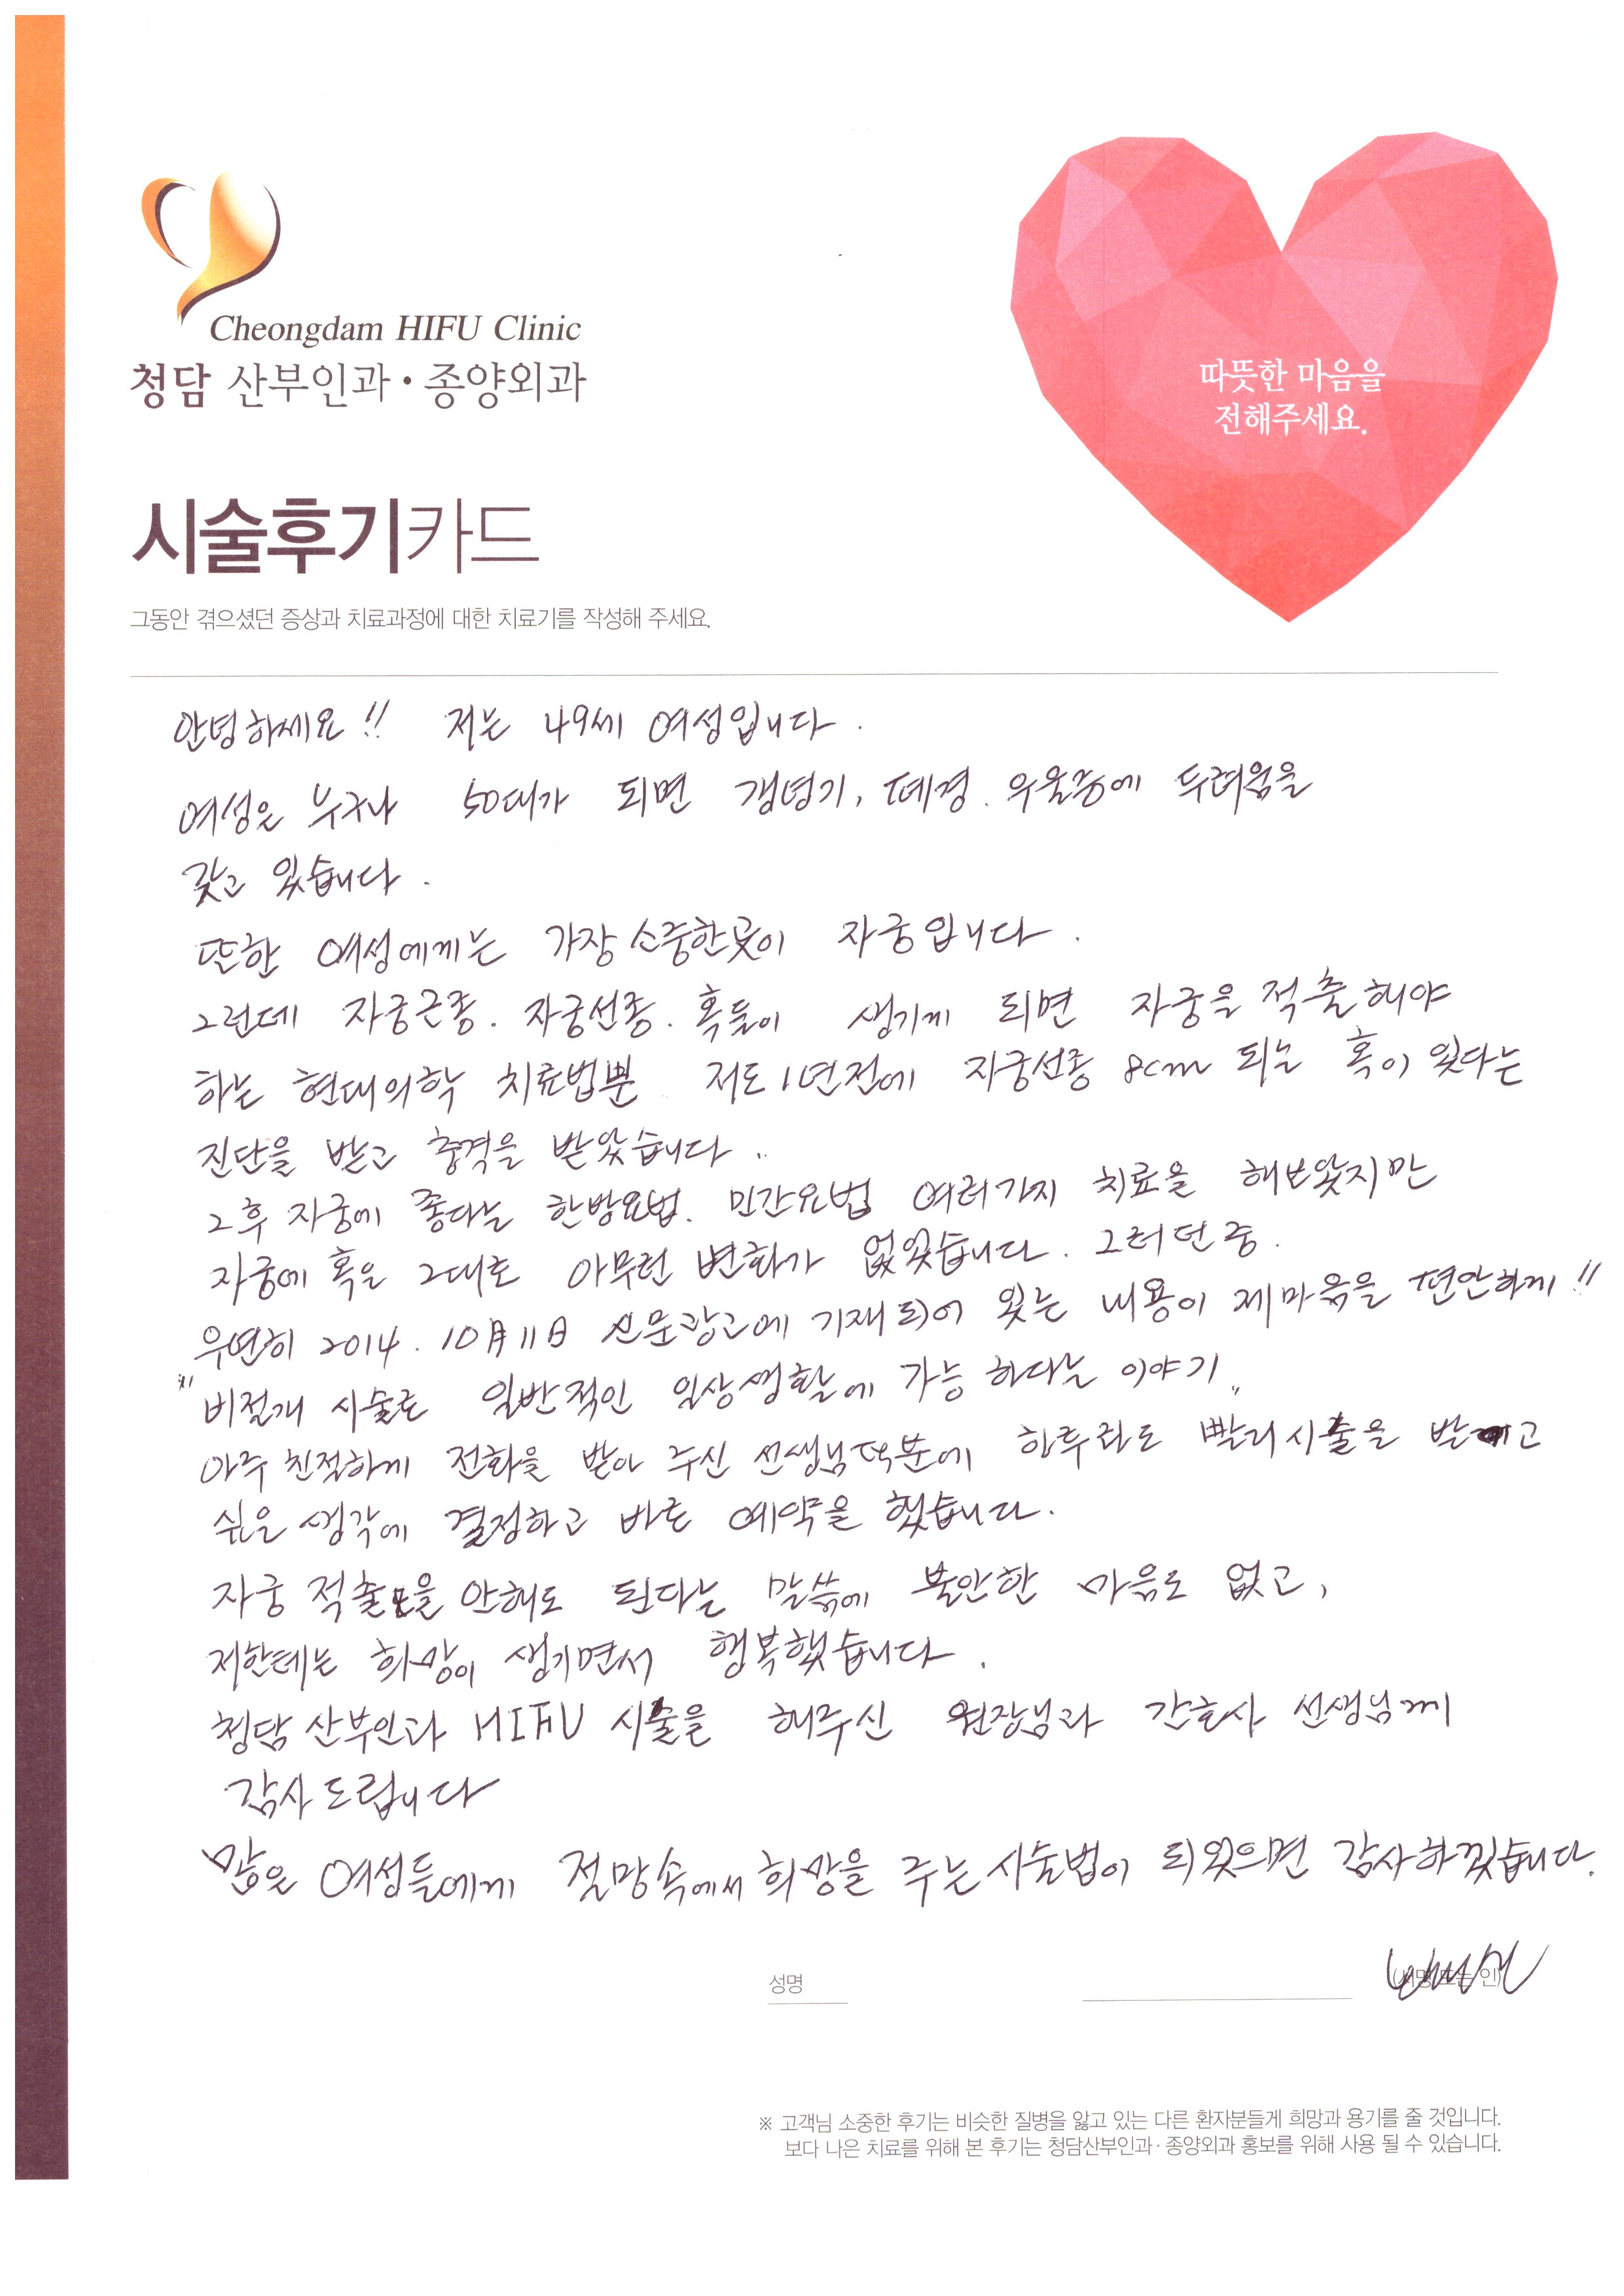 Cheongdam HIFU Clinic
청담 산부인과·종양외과
따뜻한 마음을
전해주세요.
시술후기카드
그동안 겪으셨던 증상과 치료과정에 대한 치료기를 작성해 주세요.
안녕하세요!! 저는 49세 여성입니다.
여성은 누구나 50대가 되면 갱년기, 폐경. 우울증에 두려움을
갖고 있습니다.
또한 여성에게는 가장 소중한곳이 자궁입니다.
그런데 자궁근종. 자궁선종. 혹들이 생기게 되면 자궁을 적출해야
하는 현대의학 치료법뿐 저도 1년전에 자궁선종 8cm 되는 혹이 있다는
진단을 받고 충격을 받았습니다..
그후 자궁에 좋다는 한방요법. 민간요법 여러가지 치료을 해보았지만
자궁에 혹은 그대로 아무런 변화가 없었습니다. 그러던중.
우연히 2014. 10月 11日 신문광고에 기재되어 있는 내용이 제마음을 편안하게!!
"비절개 시술로 일반적인 일상생활에 가능 하다는 이야기"
아주 친절하게 전화을 받아 주신 선생님덕분에 하루라도 빨리 시술을 받고
싶은 생각에 결정하고 바로 예약을 했습니다.
자궁 적출을 안해도 된다는 말씀에 불안한 마음도 없고,
저한테는 희망이 생기면서 행복했습니다.
청담 산부인과 HIFU 시술을 해주신 원장님과 간호사 선생님께
감사드립니다
많은 여성들에게 절망속에서 희망을 주는 시술법이 되었으면 감사하겠습니다.
성명
※ 고객님 소중한 후기는 비슷한 질병을 앓고 있는 다른 환자분들게 희망과 용기를 줄 것입니다.
보다 나은 치료를 위해 본 후기는 청담산부인과·종양외과 홍보를 위해 사용 될 수 있습니다.